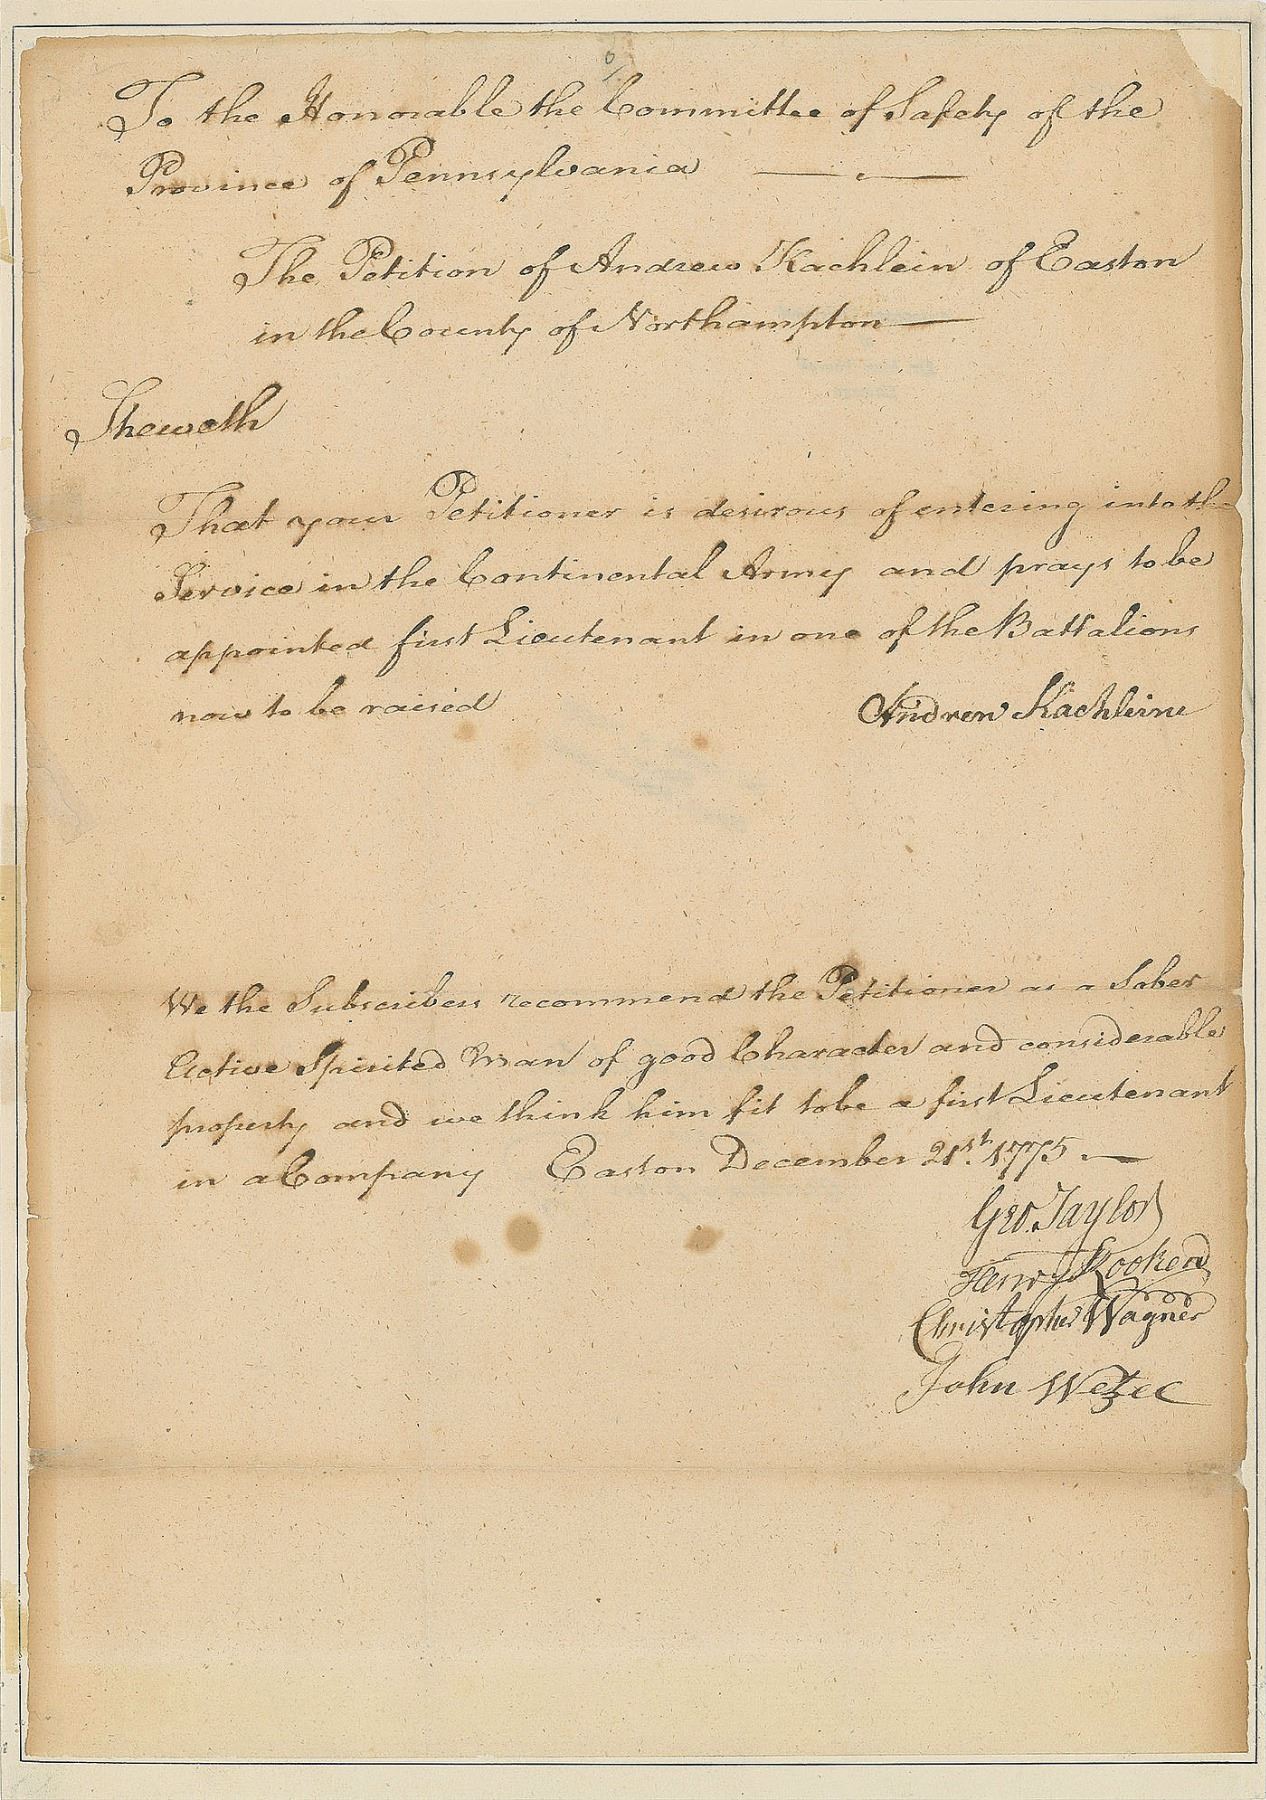 To the Honorable the Committee of Safety of the
Province of Pennsylvania
The Petition of Andrew Kachlein of Easton
in the County of Northampton
Sheweth
That your Petitioner is desirous of entering into the
Service in the Continental Army and prays to be
appointed first Lieutenant in one of the Battalions
now to be raised
Andrew Kachleine
We the Subscribers recommend the Petitioner as a Sober
Active Spirited Man of good Character and considerable
property and we think him fit to be a first Lieutenant
in a Company Easton December 21st. 1775.
Geo. Taylor
Henry Kooken
Christopher Wagner
John Wezel